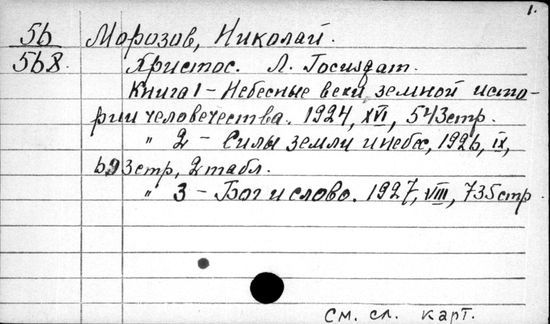 1.
56
568
Морозов, Николай.
Христос. Л. Госиздат.
Книга 1 - Небесные вехи земной исто-
рии человечества. 1924, XVI, 543стр.
" 2 - Силы земли и небес, 1926, IX,
693стр, 2 табл.
" 3 - Бог и слово. 1927, VIII, 735стр
См. сл. карт.